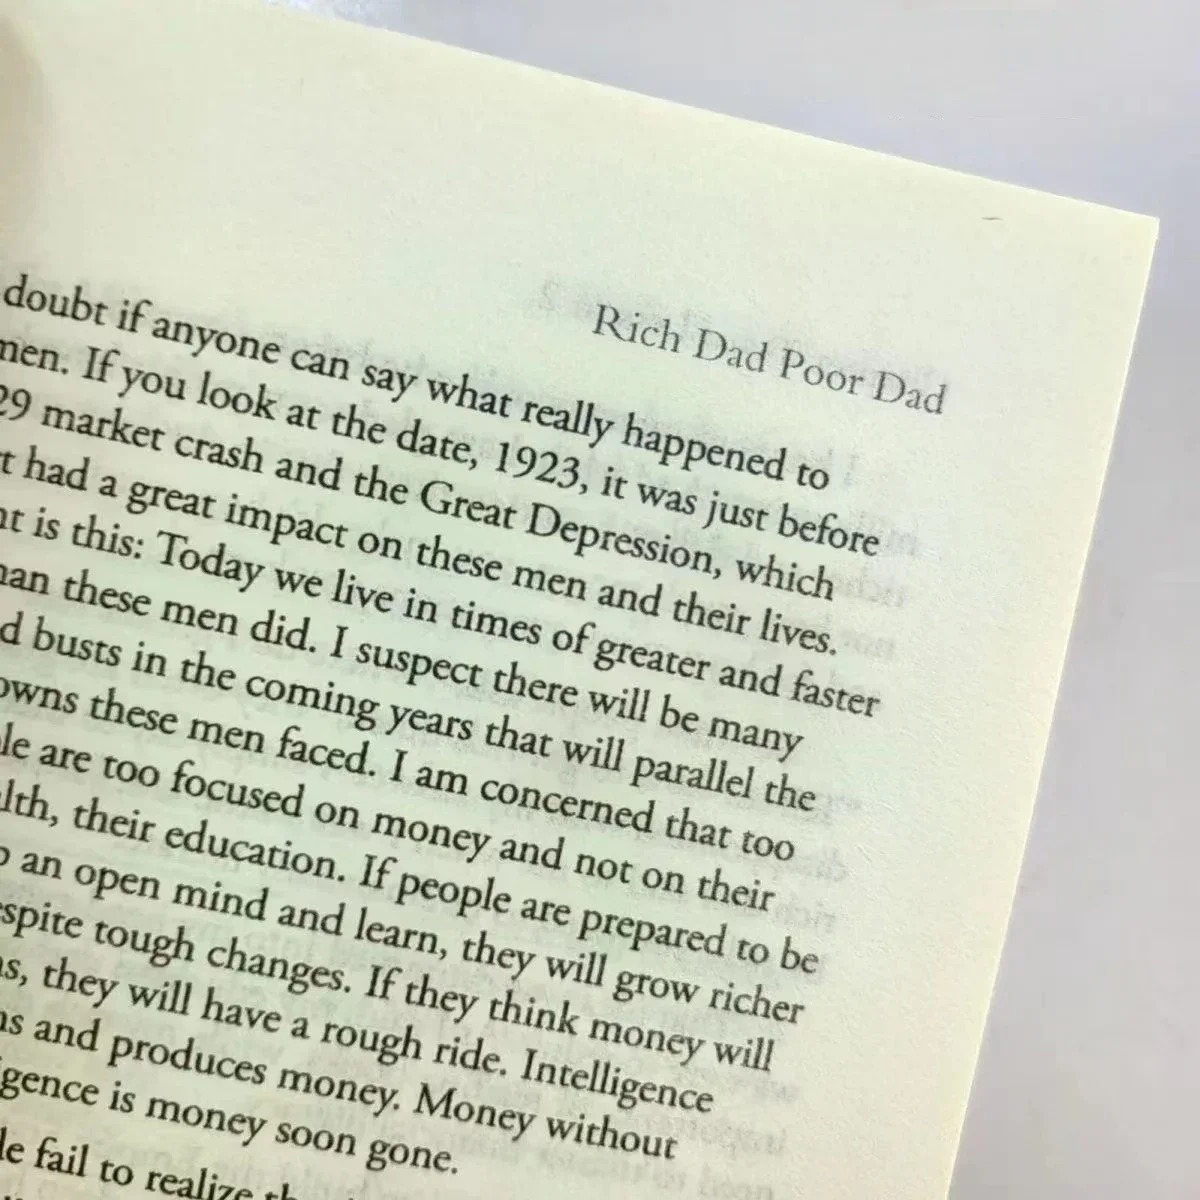 Rich Dad Poor Dad
doubt if anyone can say what really happened to
men. If you look at the date, 1923, it was just before
29 market crash and the Great Depression, which
t had a great impact on these men and their lives.
nt is this: Today we live in times of greater and faster
han these men did. I suspect there will be many
d busts in the coming years that will parallel the
owns these men faced. I am concerned that too
le are too focused on money and not on their
lth, their education. If people are prepared to be
an open mind and learn, they will grow richer
espite tough changes. If they think money will
s, they will have a rough ride. Intelligence
ns and produces money. Money without
igence is money soon gone.
le fail to realize